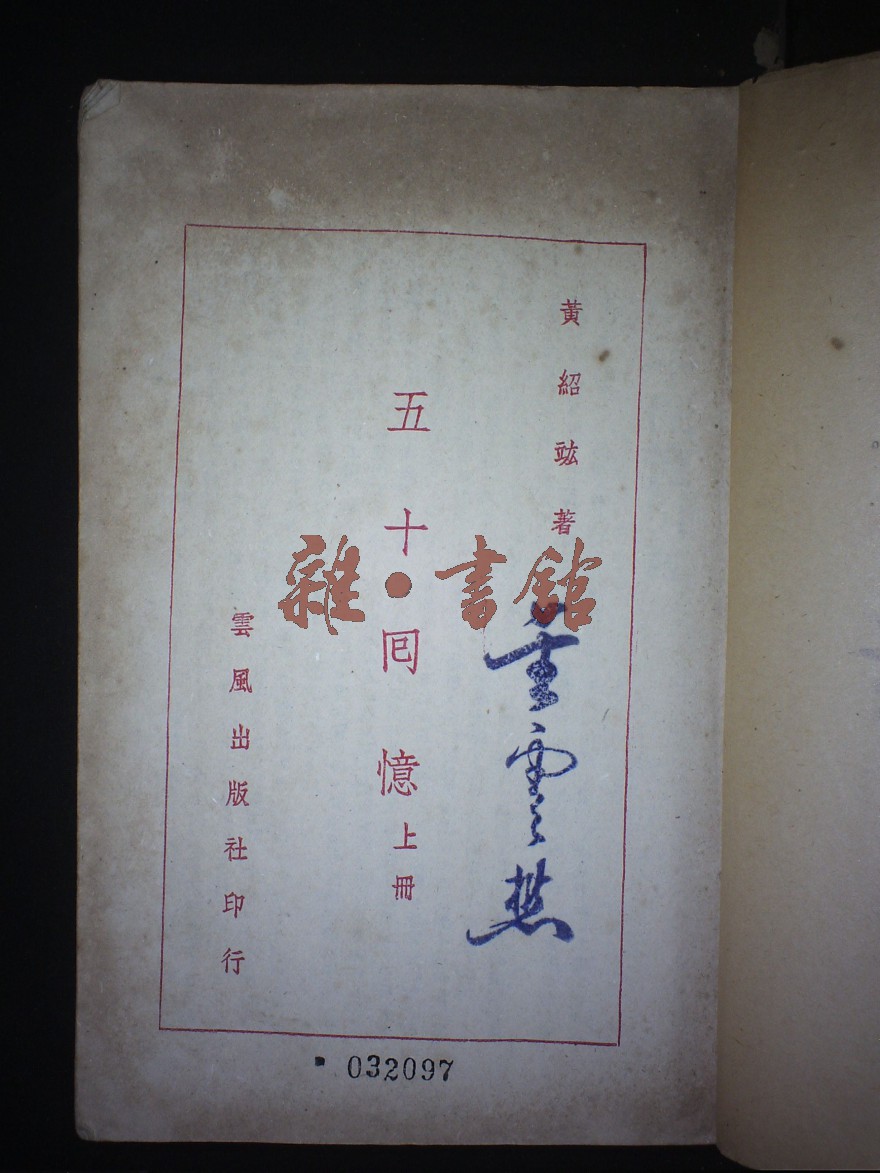 黃紹竑著
五十囘憶上冊
雲風出版社印行
雜·書館
032097